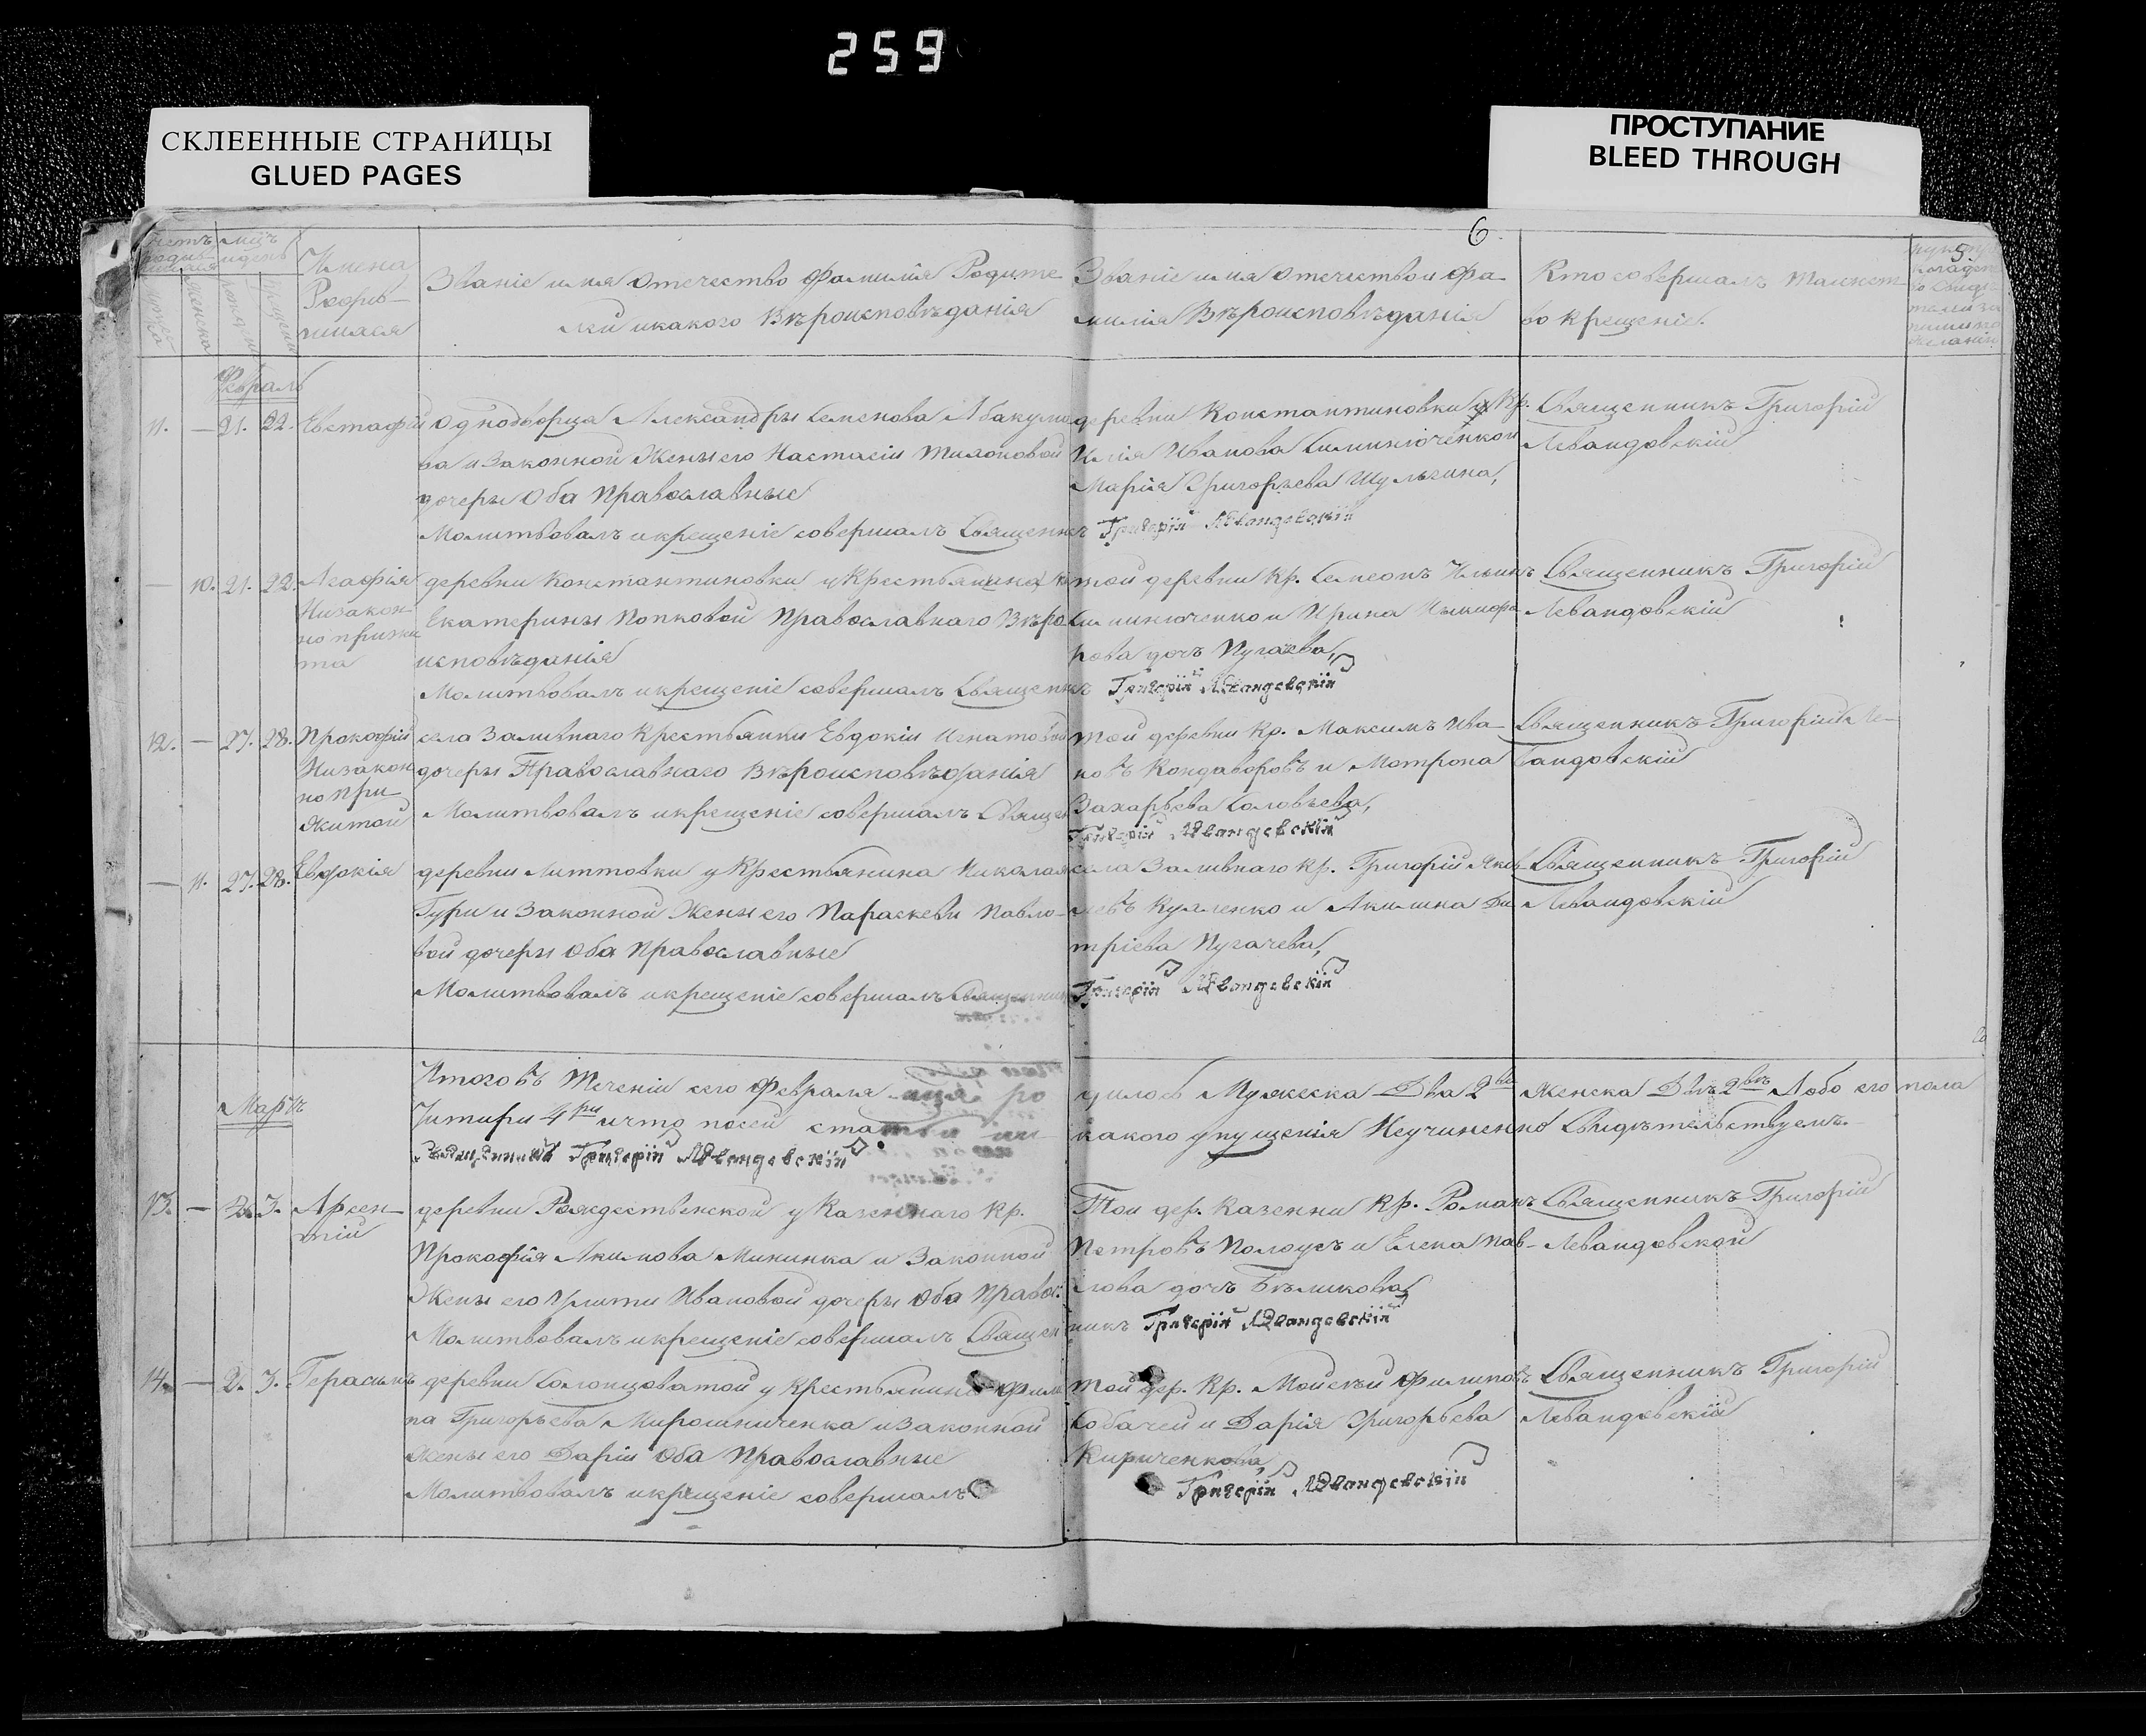 259
СКЛЕЕННЫЕ СТРАНИЦЫ
GLUED PAGES
ПРОСТУПАНИЕ
BLEED THROUGH
6
5
Имена
Родив-
шихся
Званіе имя Отечество Фамилія Родите
лей икакого Вѣроисповѣданія
Званіе имя Отечество и фа
милія Вѣроисповѣданія
Кто совершалъ Таинст
во Крещеніе.
Февраль
11. — 21. 22. Евстафій
Однодворца Александры Семенова Абакумо
ва и Законной Жены его Настасіи Тихоновой
дочеры Оба Православные
Молитвовалъ икрещеніе совершалъ Священникъ
деревни Константиновки Кр.
Илія Иванова
Марія Григорьева Шульгина,
Григорій Левандовскій
Священникъ Григорій
Левандовскій
— 10. 21. 22. Агафія
Низакон
но прижи
та
деревни Константиновки у Крестьянки
Екатерины Попковой Православнаго Вѣро
исповѣданія
Молитвовалъ икрещеніе совершалъ Священникъ
той деревни Кр. Симеонъ Ильинъ
и Ирина Никифо
рова дочъ Пугачева,
Григорій Левандовскій
Священникъ Григорій
Левандовскій
12. — 27. 28. Прокофій
Низакон
но при
житой
села Заливнаго Крестьянки Евдокіи Игнатовой
дочеры Православнаго Вѣроисповѣданія
Молитвовалъ икрещеніе совершалъ Священ
той деревни Кр. Максимъ Ива-
новъ Кондауровъ и Мотрона
Захарьева Соловьева,
Григорій Левандовскій
Священникъ Григорій Ле-
вандовскій
— 11. 27. 28. Евдокія
деревни Литтовки у Крестьянина Николая
Гури и Законной Жены его Параскеви Павло-
вой дочеры Оба Православные
Молитвовалъ икрещеніе совершалъ Священникъ
села Заливнаго Кр. Григорій Яков
левъ Куяленко и Акилина Ди
тріева Пугачева,
Григорій Левандовскій
Священникъ Григорій
Левандовскій
Мартъ
Итого въ Теченіи сего Февраля мца ро
дилось Мужеска Два 2 ва Женска Двѣ 2 вѣ Лобо его пола
Читири 4 ри ичто посей
какого упущенія Неучиненно Свидѣтельствуемъ.
Священникъ Григорій Левандовскій
13. — 2. 3. Арсен-
тій
деревни Рождественской у Казеннаго Кр.
Прокофія Акимова Мининка и Законной
Жены его Улити Ивановой дочеры Оба Правос:
Молитвовалъ икрещеніе совершалъ Священ
Той дер. Казенни Кр. Романъ
Петровъ Полоусъ и Елена Пав-
лова дочъ Бѣликова,
никъ Григорій Левандовскій
Священникъ Григорій
Левандовской
14. — 2. 3. Герасимъ
деревни Солонцоватой у Крестьянина Фили
па Григорьева Мирошниченка и Законной
жены его Даріи Оба Православные
Молитвовалъ икрещеніе совершалъ
той дер. Кр. Мойсей Филиповъ
Собачей и Дарія Григорьева
Кириченкова
Григорій Левандовскій
Священникъ Григорій
Левандовскій